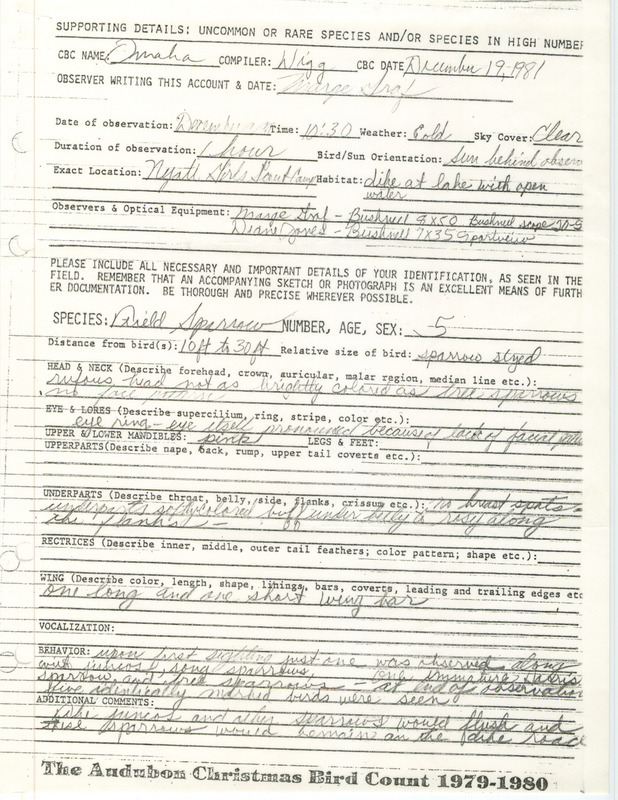 SUPPORTING DETAILS: UNCOMMON OR RARE SPECIES AND/OR SPECIES IN HIGH NUMBER
CBC NAME: Omaha COMPILER: Wigg CBC DATE December 19, 1981
OBSERVER WRITING THIS ACCOUNT & DATE: Marge Graf
Date of observation: December Time: 10:30 Weather: Cold Sky Cover: Clear
Duration of observation: 1 hour Bird/Sun Orientation: sun behind observ
Exact Location: Girls Scout Camp Habitat: dike at lake with open
water
Observers & Optical Equipment: Marge Graf - Bushnell 8X50 Bushnell scope
Deane Jones - Bushnell 7X35 Sportview
PLEASE INCLUDE ALL NECESSARY AND IMPORTANT DETAILS OF YOUR IDENTIFICATION, AS SEEN IN THE
FIELD. REMEMBER THAT AN ACCOMPANYING SKETCH OR PHOTOGRAPH IS AN EXCELLENT MEANS OF FURTH
ER DOCUMENTATION. BE THOROUGH AND PRECISE WHEREVER POSSIBLE.
SPECIES: Field Sparrow NUMBER, AGE, SEX: 5
Distance from bird(s): 10 ft to 30 ft Relative size of bird: sparrow sized
HEAD & NECK (Describe forehead, crown, auricular, malar region, median line etc.):
rufous head not as brightly colored as tree sparrows
no face
EYE & LORES (Describe supercilium, ring, stripe, color etc.):
eye ring - eye itself pronounced because of lack of facial
UPPER & LOWER MANDIBLES: pink LEGS & FEET:
UPPERPARTS(Describe nape, back, rump, upper tail coverts etc.):
UNDERPARTS (Describe throat, belly, side, flanks, crissum etc.): no breast spots -
underparts softly colored buff under belly to rosy along
the flanks -
RECTRICES (Describe inner, middle, outer tail feathers; color pattern; shape etc.):
WING (Describe color, length, shape, linings, bars, coverts, leading and trailing edges etc
one long and one short wing bar
VOCALIZATION:
BEHAVIOR: upon first sighting just one was observed along
with juncos, song sparrows, one immature Harris
sparrow and tree sparrows - at end of observation
five identically marked birds were seen
ADDITIONAL COMMENTS:
The juncos and other sparrows would flush and
these sparrows would remain on the dike road
The Audubon Christmas Bird Count 1979-1980